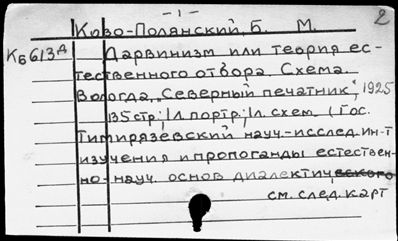 - 1 -
2
Козо-Полянский, Б. М.
Кб613д Дарвинизм или теория ес-
тественного отбора. Схема.
Вологда, "Северный печатник", 1925
135 стр; 1л. портр; 1л. схем. (Гос.
Тимирязевский науч.-исслед. ин-т
изучения и пропоганды естествен-
но-науч. основ диалектического
см. след. карт